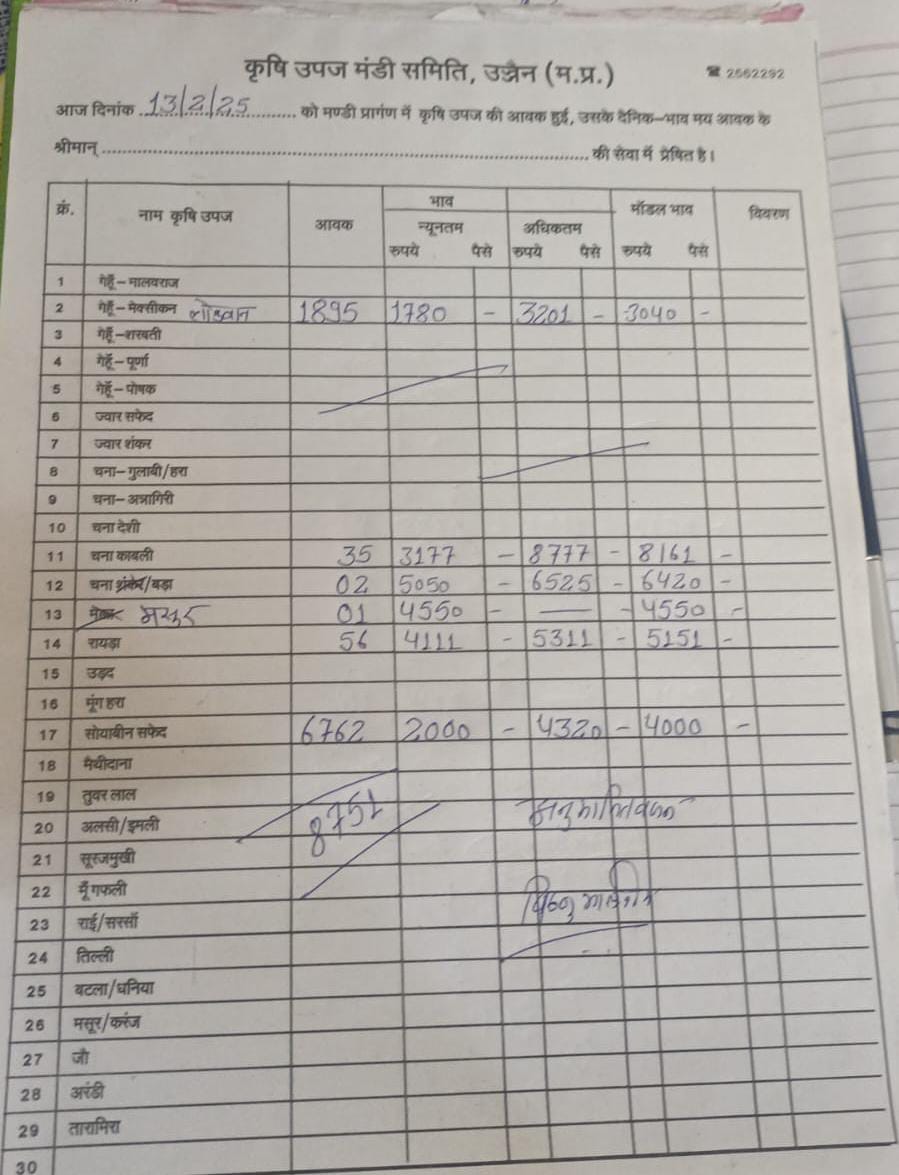 कृषि उपज मंडी समिति, उज्जैन (म.प्र.) ☎ 2562292
आज दिनांक 13/2/25 को मण्डी प्रागंण में कृषि उपज की आवक हुई, उसके दैनिक-भाव मय आवक के
श्रीमान् की सेवा में प्रेषित है।
क्रं. नाम कृषि उपज आवक भाव मॉडल भाव विवरण
न्यूनतम अधिकतम
रुपये पैसे रुपये पैसे रुपये पैसे
1 गेहूँ-मालवराज
2 गेहूँ-मेक्सीकन लोकवान 1895 1780 - 3201 - 3040 -
3 गेहूँ-शरबती
4 गेहूँ-पूर्णा
5 गेहूँ-पोषक
6 ज्वार सफेद
7 ज्वार शंकर
8 चना-गुलाबी/हरा
9 चना-अन्नागिरी
10 चना देशी
11 चना काबली 35 3177 - 8777 - 8161 -
12 चना शंकर/बड़ा 02 5050 - 6525 - 6420 -
13 मसूर 01 4550 - — - 4550 -
14 रायड़ा 56 4111 - 5311 - 5151 -
15 उड़द
16 मूंग हरा
17 सोयाबीन सफेद 6762 2000 - 4320 - 4000 -
18 मैथीदाना
19 तुवर लाल
20 अलसी/इमली 8751
21 सूरजमुखी
22 मूँगफली
23 राई/सरसों
24 तिल्ली
25 बटला/धनिया
26 मसूर/करंज
27 जौ
28 अरंडी
29 तारामिरा
30